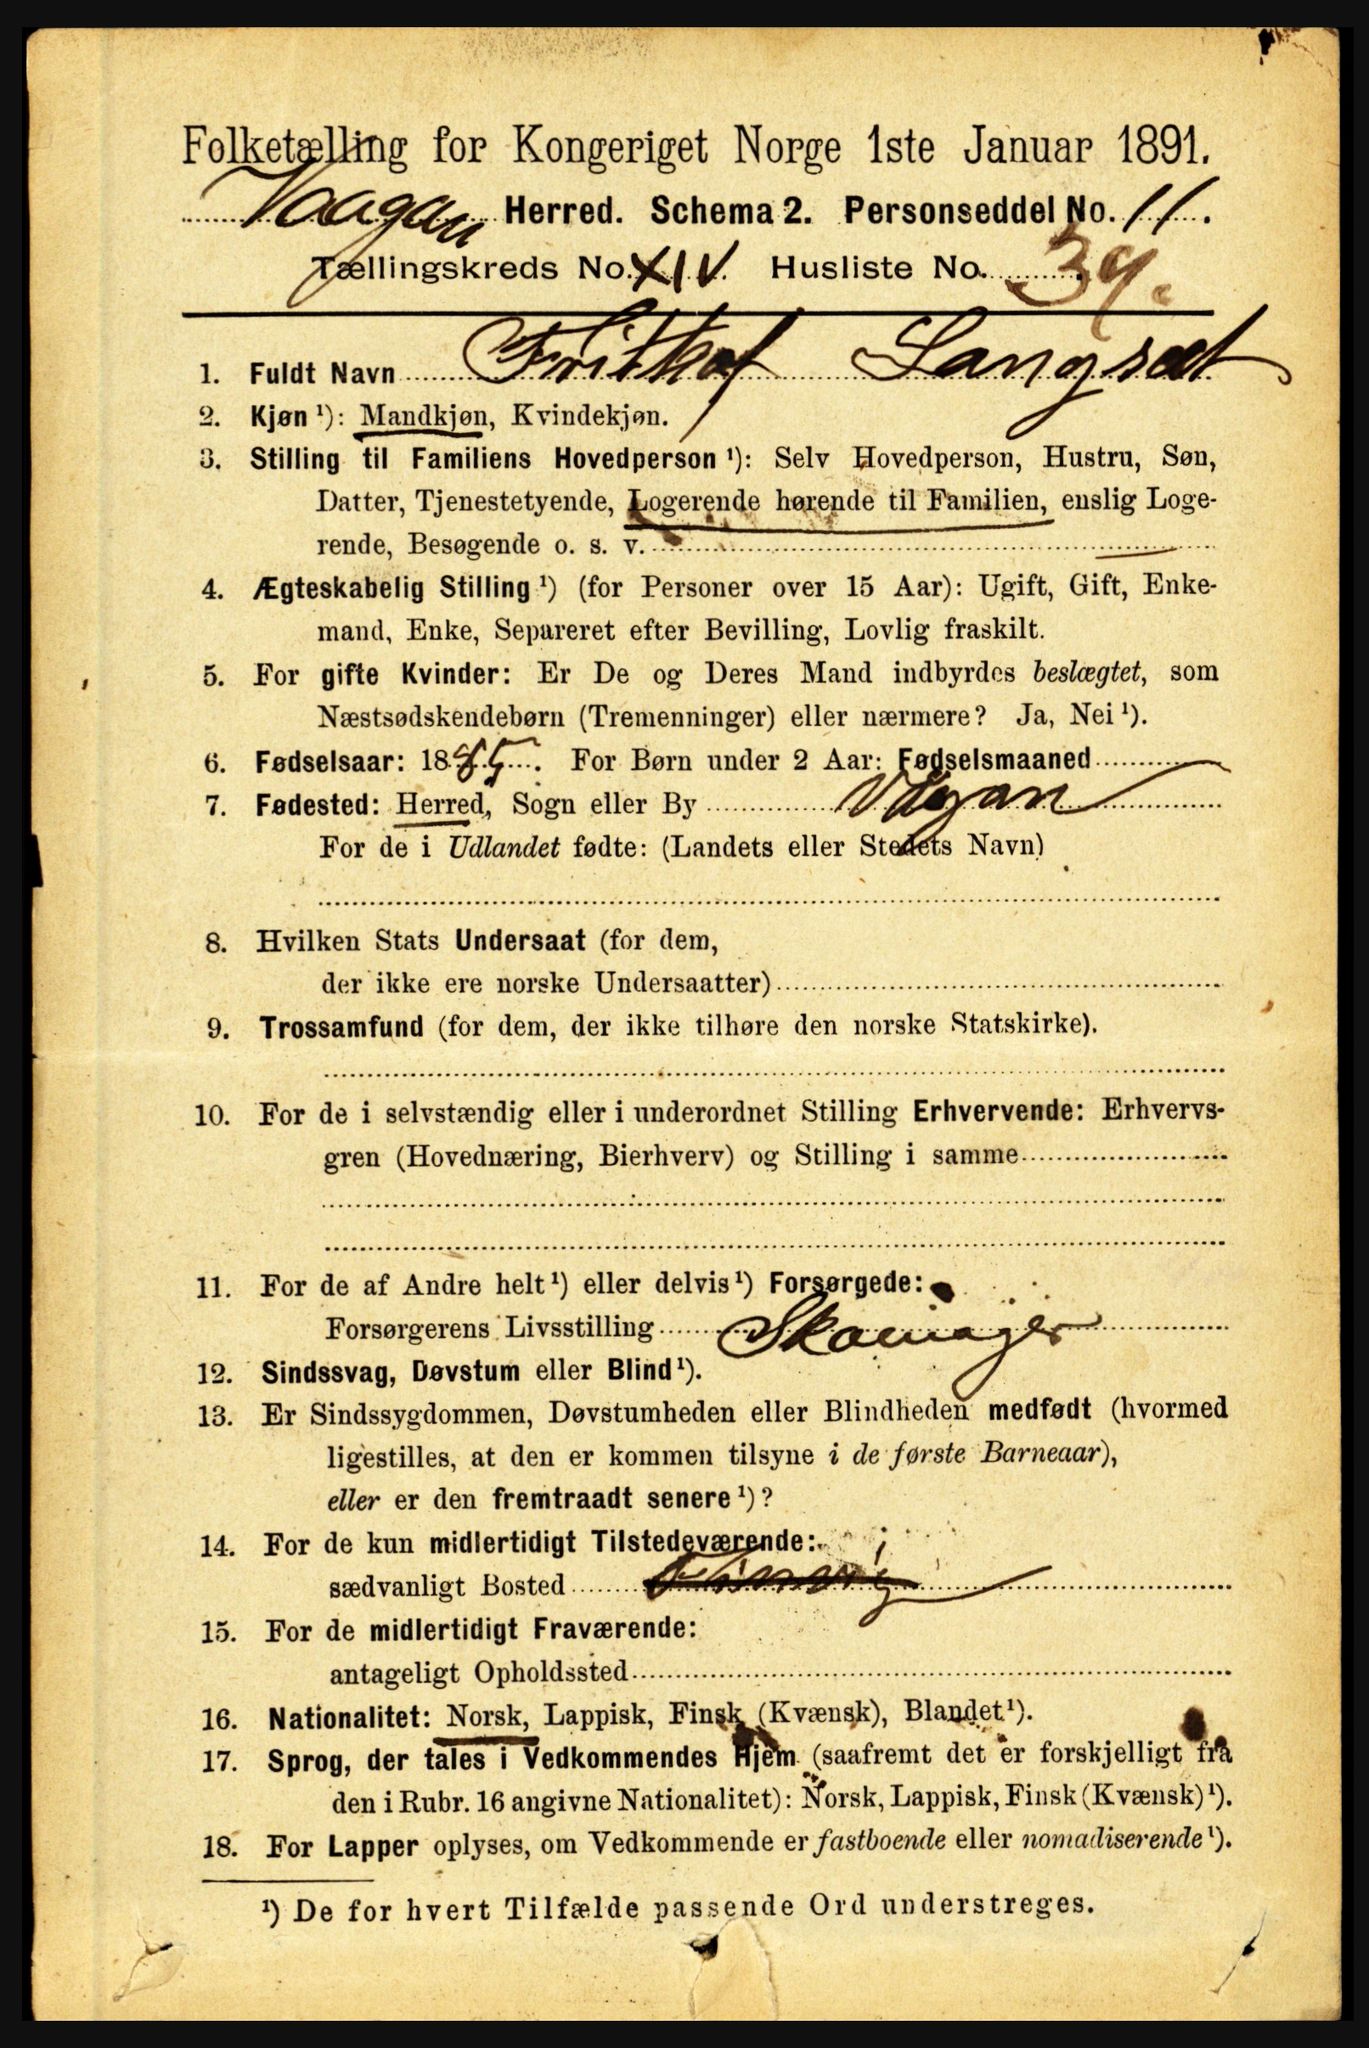 Folketælling for Kongeriget Norge 1ste Januar 1891.
Vaagan Herred. Schema 2. Personseddel No. 11.
Tællingskreds No. XIV. Husliste No. 39.
1. Fuldt Navn Frithof Langsæt
2. Kjøn ¹): Mandkjøn, Kvindekjøn.
3. Stilling til Familiens Hovedperson ¹): Selv Hovedperson, Hustru, Søn,
Datter, Tjenestetyende, Logerende hørende til Familien, enslig Loge-
rende, Besøgende o. s. v.
4. Ægteskabelig Stilling ¹) (for Personer over 15 Aar): Ugift, Gift, Enke-
mand, Enke, Separeret efter Bevilling, Lovlig fraskilt.
5. For gifte Kvinder: Er De og Deres Mand indbyrdes beslægtet, som
Næstsødskendebørn (Tremenninger) eller nærmere? Ja, Nei ¹).
6. Fødselsaar: 1885. For Børn under 2 Aar: Fødselsmaaned
7. Fødested: Herred, Sogn eller By Vågan
For de i Udlandet fødte: (Landets eller Stedets Navn)
8. Hvilken Stats Undersaat (for dem,
der ikke ere norske Undersaatter)
9. Trossamfund (for dem, der ikke tilhøre den norske Statskirke).
10. For de i selvstændig eller i underordnet Stilling Erhvervende: Erhvervs-
gren (Hovednæring, Bierhverv) og Stilling i samme
11. For de af Andre helt ¹) eller delvis ¹) Forsørgede:
Forsørgerens Livsstilling Skomager
12. Sindssvag, Døvstum eller Blind ¹).
13. Er Sindssygdommen, Døvstumheden eller Blindheden medfødt (hvormed
ligestilles, at den er kommen tilsyne i de første Barneaar),
eller er den fremtraadt senere ¹)?
14. For de kun midlertidigt Tilstedeværende:
sædvanligt Bosted
15. For de midlertidigt Fraværende:
antageligt Opholdssted
16. Nationalitet: Norsk, Lappisk, Finsk (Kvænsk), Blandet ¹).
17. Sprog, der tales i Vedkommendes Hjem (saafremt det er forskjelligt fra
den i Rubr. 16 angivne Nationalitet): Norsk, Lappisk, Finsk (Kvænsk) ¹).
18. For Lapper oplyses, om Vedkommende er fastboende eller nomadiserende ¹).
¹) De for hvert Tilfælde passende Ord understreges.